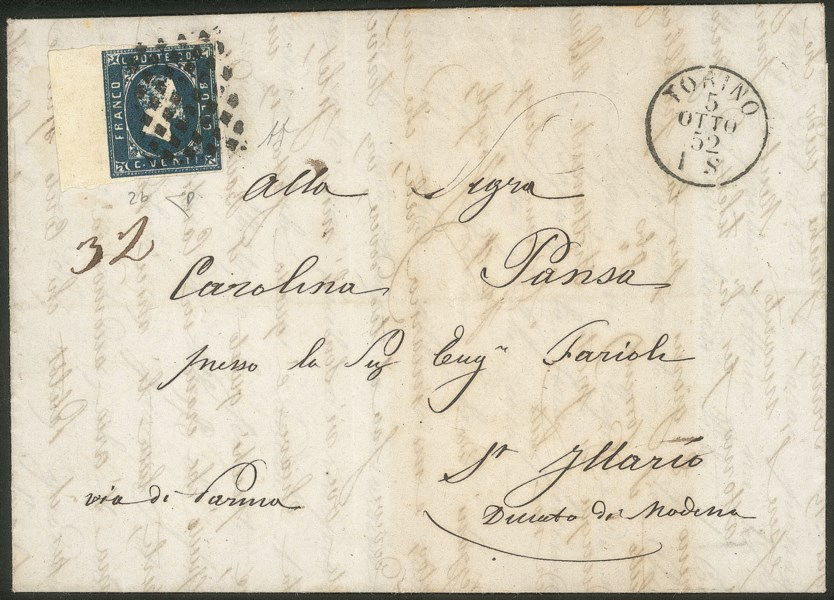 C. POSTE 20
FRANCO
BOLLO
C. VENTI
TORINO
5
OTTO
52
1 S
2b
32
Alla Sigra
Carolina Pansa
presso la Sig Eug.ª Farioli
St Illario
via di Parma
Ducato di Modena